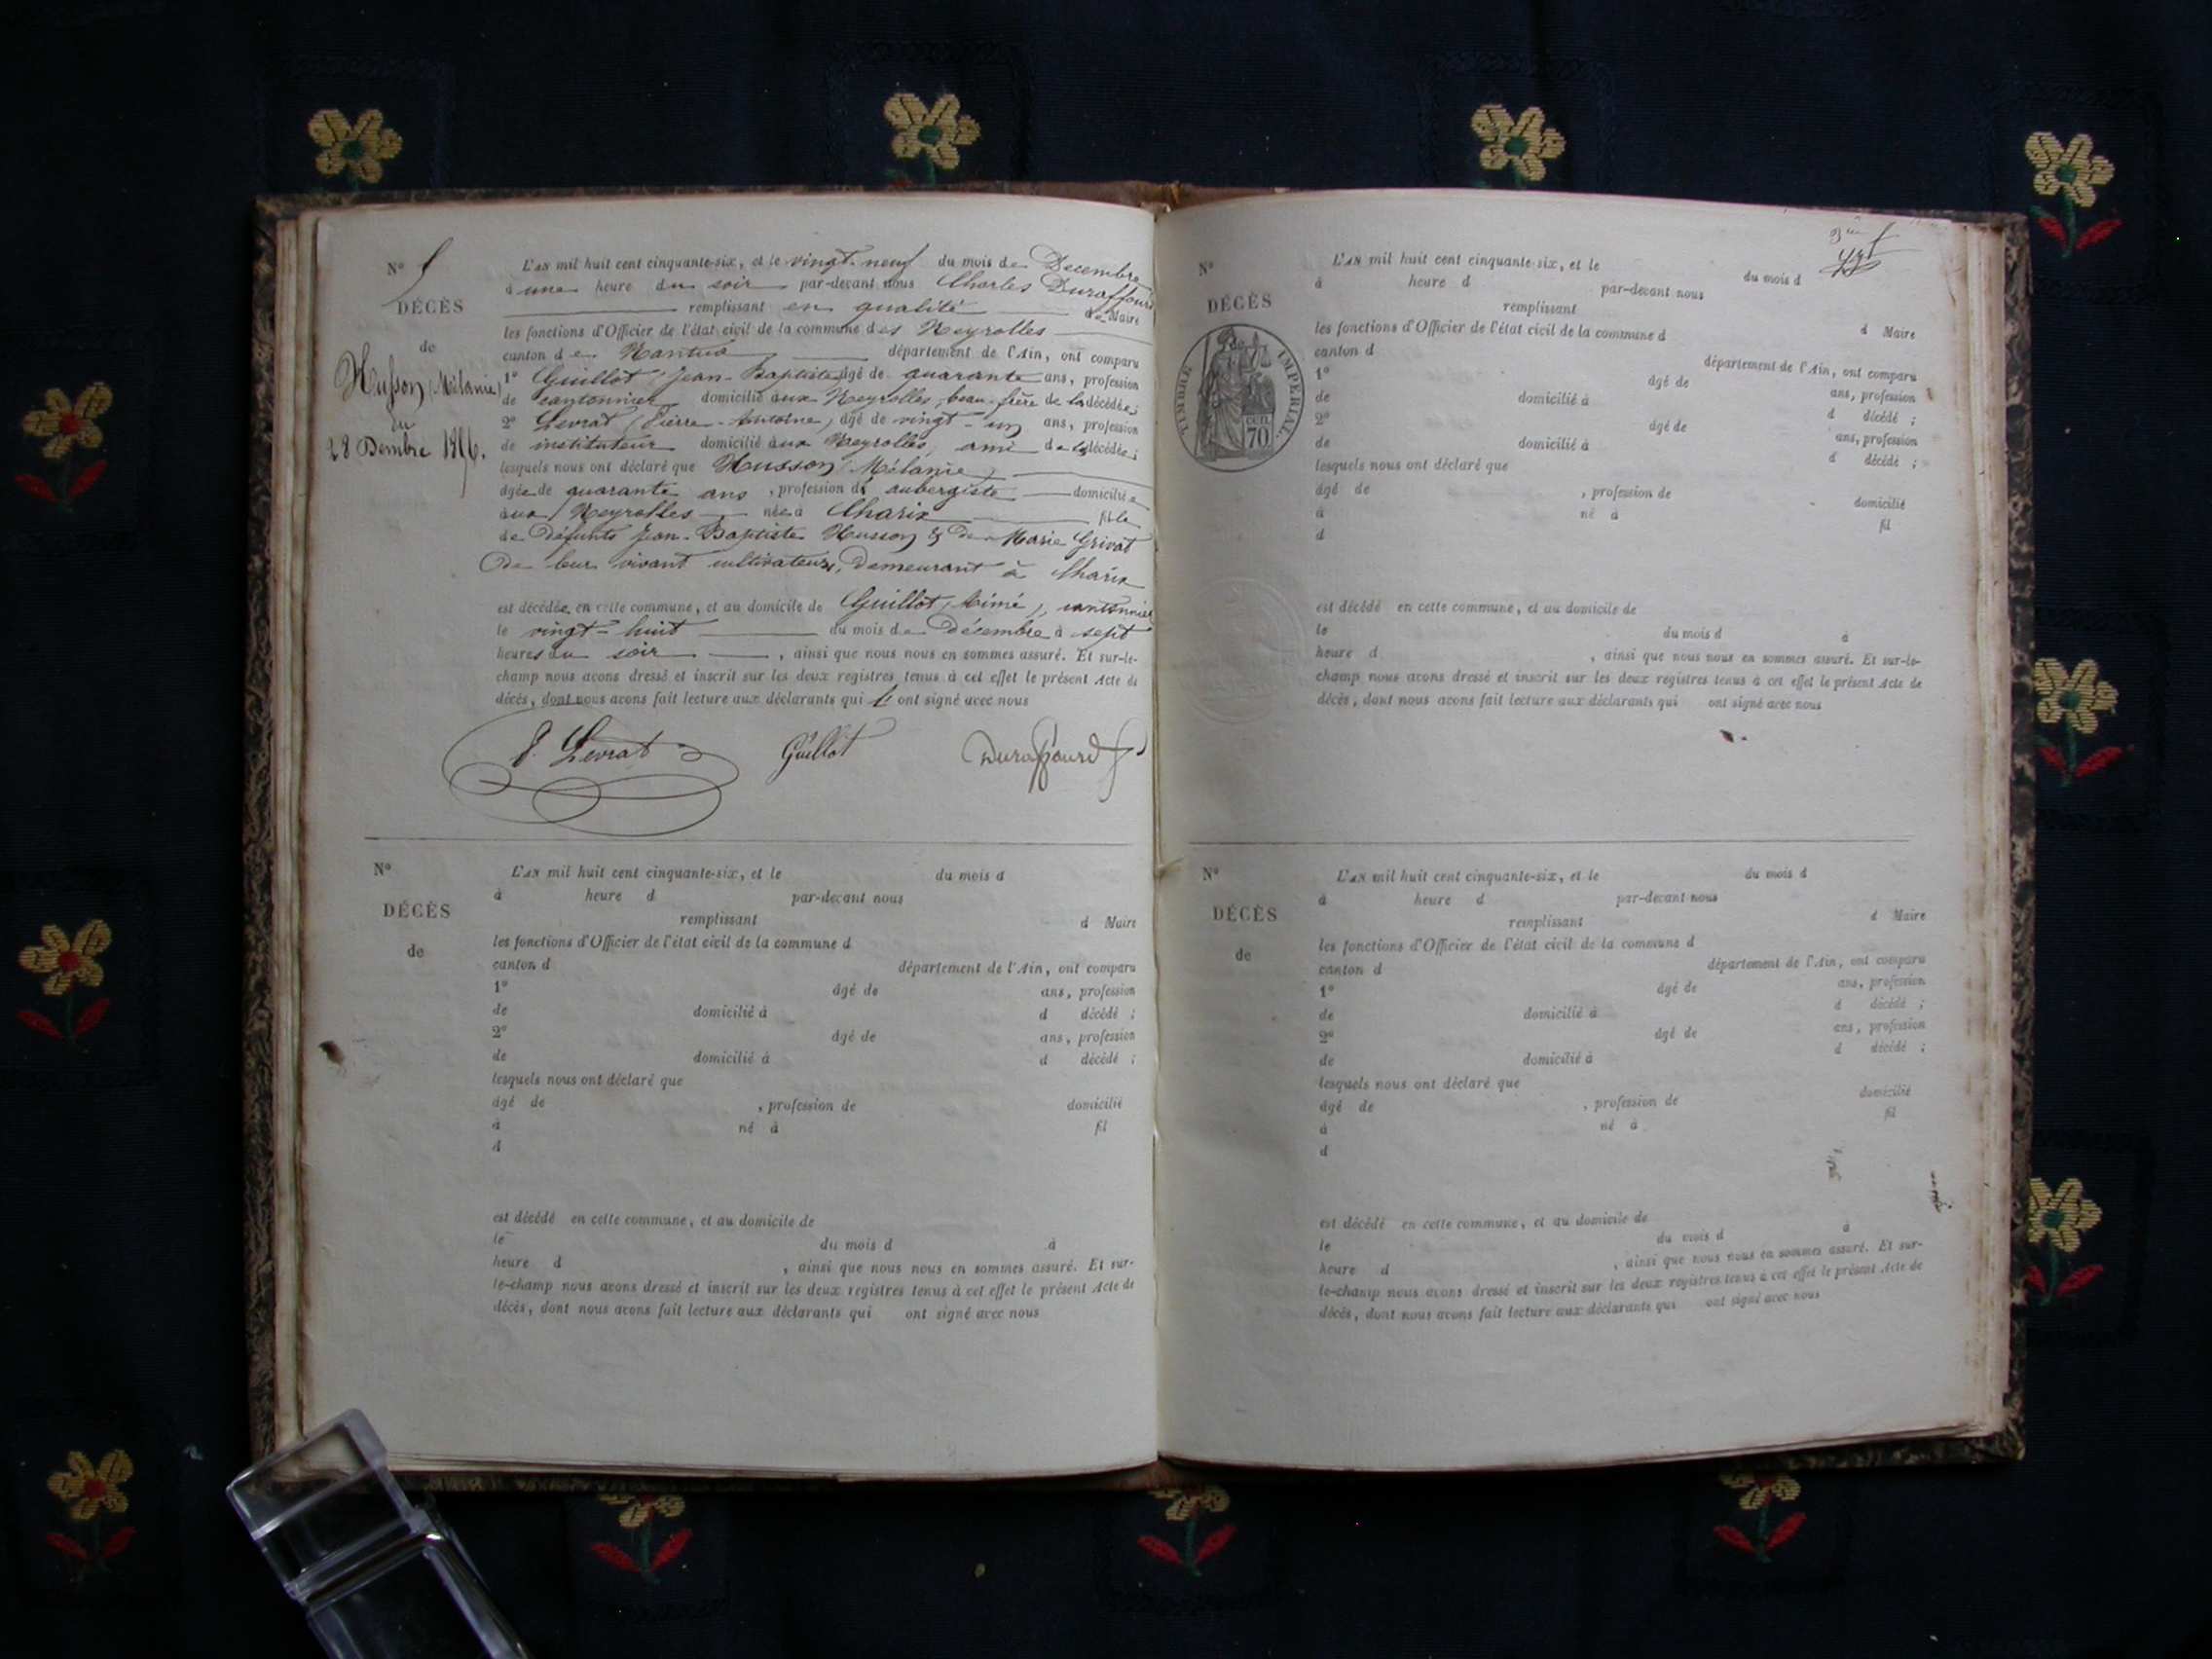 N°
DÉCÈS
de
Husson (Mélanie)
du
28 Dembre 1856.
L'AN mil huit cent cinquante-six, et le vingt-neuf du mois de Décembre
à une heure du soir par-devant nous Charles Duraffourd
remplissant en qualité de Maire
les fonctions d'Officier de l'état civil de la commune des Neyrolles
canton de Nantua département de l'Ain, ont comparu
1° Guillot (Jean-Baptiste) âgé de quarante ans, profession
de cantonnier domicilié aux Neyrolles, beau-frère de la décédée;
2° Levrat (Pierre-Antoine) âgé de vingt-un ans, profession
de instituteur domicilié aux Neyrolles, ami de la décédée;
lesquels nous ont déclaré que Husson (Mélanie)
âgée de quarante ans, profession d' aubergiste domiciliée
aux Neyrolles née à Charix fille
de défunts Jean-Baptiste Husson & de Marie Grivat
De leur vivant cultivateurs, demeurant à Charix
est décédée en cette commune, et au domicile de Guillot (Aimé), cantonnier
le vingt-huit du mois de Décembre à sept
heures du soir, ainsi que nous nous en sommes assuré. Et sur-le-
champ nous avons dressé et inscrit sur les deux registres tenus à cet effet le présent Acte de
décès, dont nous avons fait lecture aux déclarants qui ont signé avec nous
P. Levrat Guillot Duraffourd
N°
DÉCÈS
de
L'AN mil huit cent cinquante-six, et le du mois d
à heure d par-devant nous
remplissant d Maire
les fonctions d'Officier de l'état civil de la commune d
canton d département de l'Ain, ont comparu
1° âgé de ans, profession
de domicilié à d décédé ;
2° âgé de ans, profession
de domicilié à d décédé ;
lesquels nous ont déclaré que
âgé de , profession de domicilié
à né à fil
d
est décédé en cette commune, et au domicile de
le du mois d à
heure d , ainsi que nous nous en sommes assuré. Et sur-
le-champ nous avons dressé et inscrit sur les deux registres tenus à cet effet le présent Acte de
décès, dont nous avons fait lecture aux déclarants qui ont signé avec nous
N°
DÉCÈS
de
TIMBRE IMPERIAL.
CEN.
70
L'AN mil huit cent cinquante-six, et le du mois d
à heure d par-devant nous
remplissant d Maire
les fonctions d'Officier de l'état civil de la commune d
canton d département de l'Ain, ont comparu
1° âgé de ans, profession
de domicilié à d décédé ;
2° âgé de ans, profession
de domicilié à d décédé ;
lesquels nous ont déclaré que
âgé de , profession de domicilié
à né à fil
d
est décédé en cette commune, et au domicile de
le du mois d à
heure d , ainsi que nous nous en sommes assuré. Et sur-le-
champ nous avons dressé et inscrit sur les deux registres tenus à cet effet le présent Acte de
décès, dont nous avons fait lecture aux déclarants qui ont signé avec nous
N°
DÉCÈS
de
L'AN mil huit cent cinquante-six, et le du mois d
à heure d par-devant nous
remplissant d Maire
les fonctions d'Officier de l'état civil de la commune d
canton d département de l'Ain, ont comparu
1° âgé de ans, profession
de domicilié à d décédé ;
2° âgé de ans, profession
de domicilié à d décédé ;
lesquels nous ont déclaré que
âgé de , profession de domicilié
à né à fil
d
est décédé en cette commune, et au domicile de
le du mois d à
heure d , ainsi que nous nous en sommes assuré. Et sur-
le-champ nous avons dressé et inscrit sur les deux registres tenus à cet effet le présent Acte de
décès, dont nous avons fait lecture aux déclarants qui ont signé avec nous